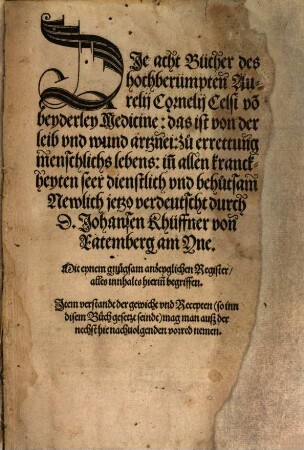 Die acht Bücher des
hochberümpten Au-
relij Cornelij Celsi võ
beyderley Medicine: das ist von der
leib vnd wund artznei: zů errettung
menschlichs lebens: iñ allen kranck-
heyten seer dienstlich vnd behůtsam
Newlich jetzo verdeutscht durch
D. Johansen Khüffner von
Ratemberg am Yne.
Mit eynem gnůgsam anzeyglichen Register/
alles innhalts hieriñ begriffen.
Item verstandt der gewicht vnd Recepten (so inn
disem Bůch gesetzt seindt) mag man auß der
nechst hie nachuolgenden vorred nemen.